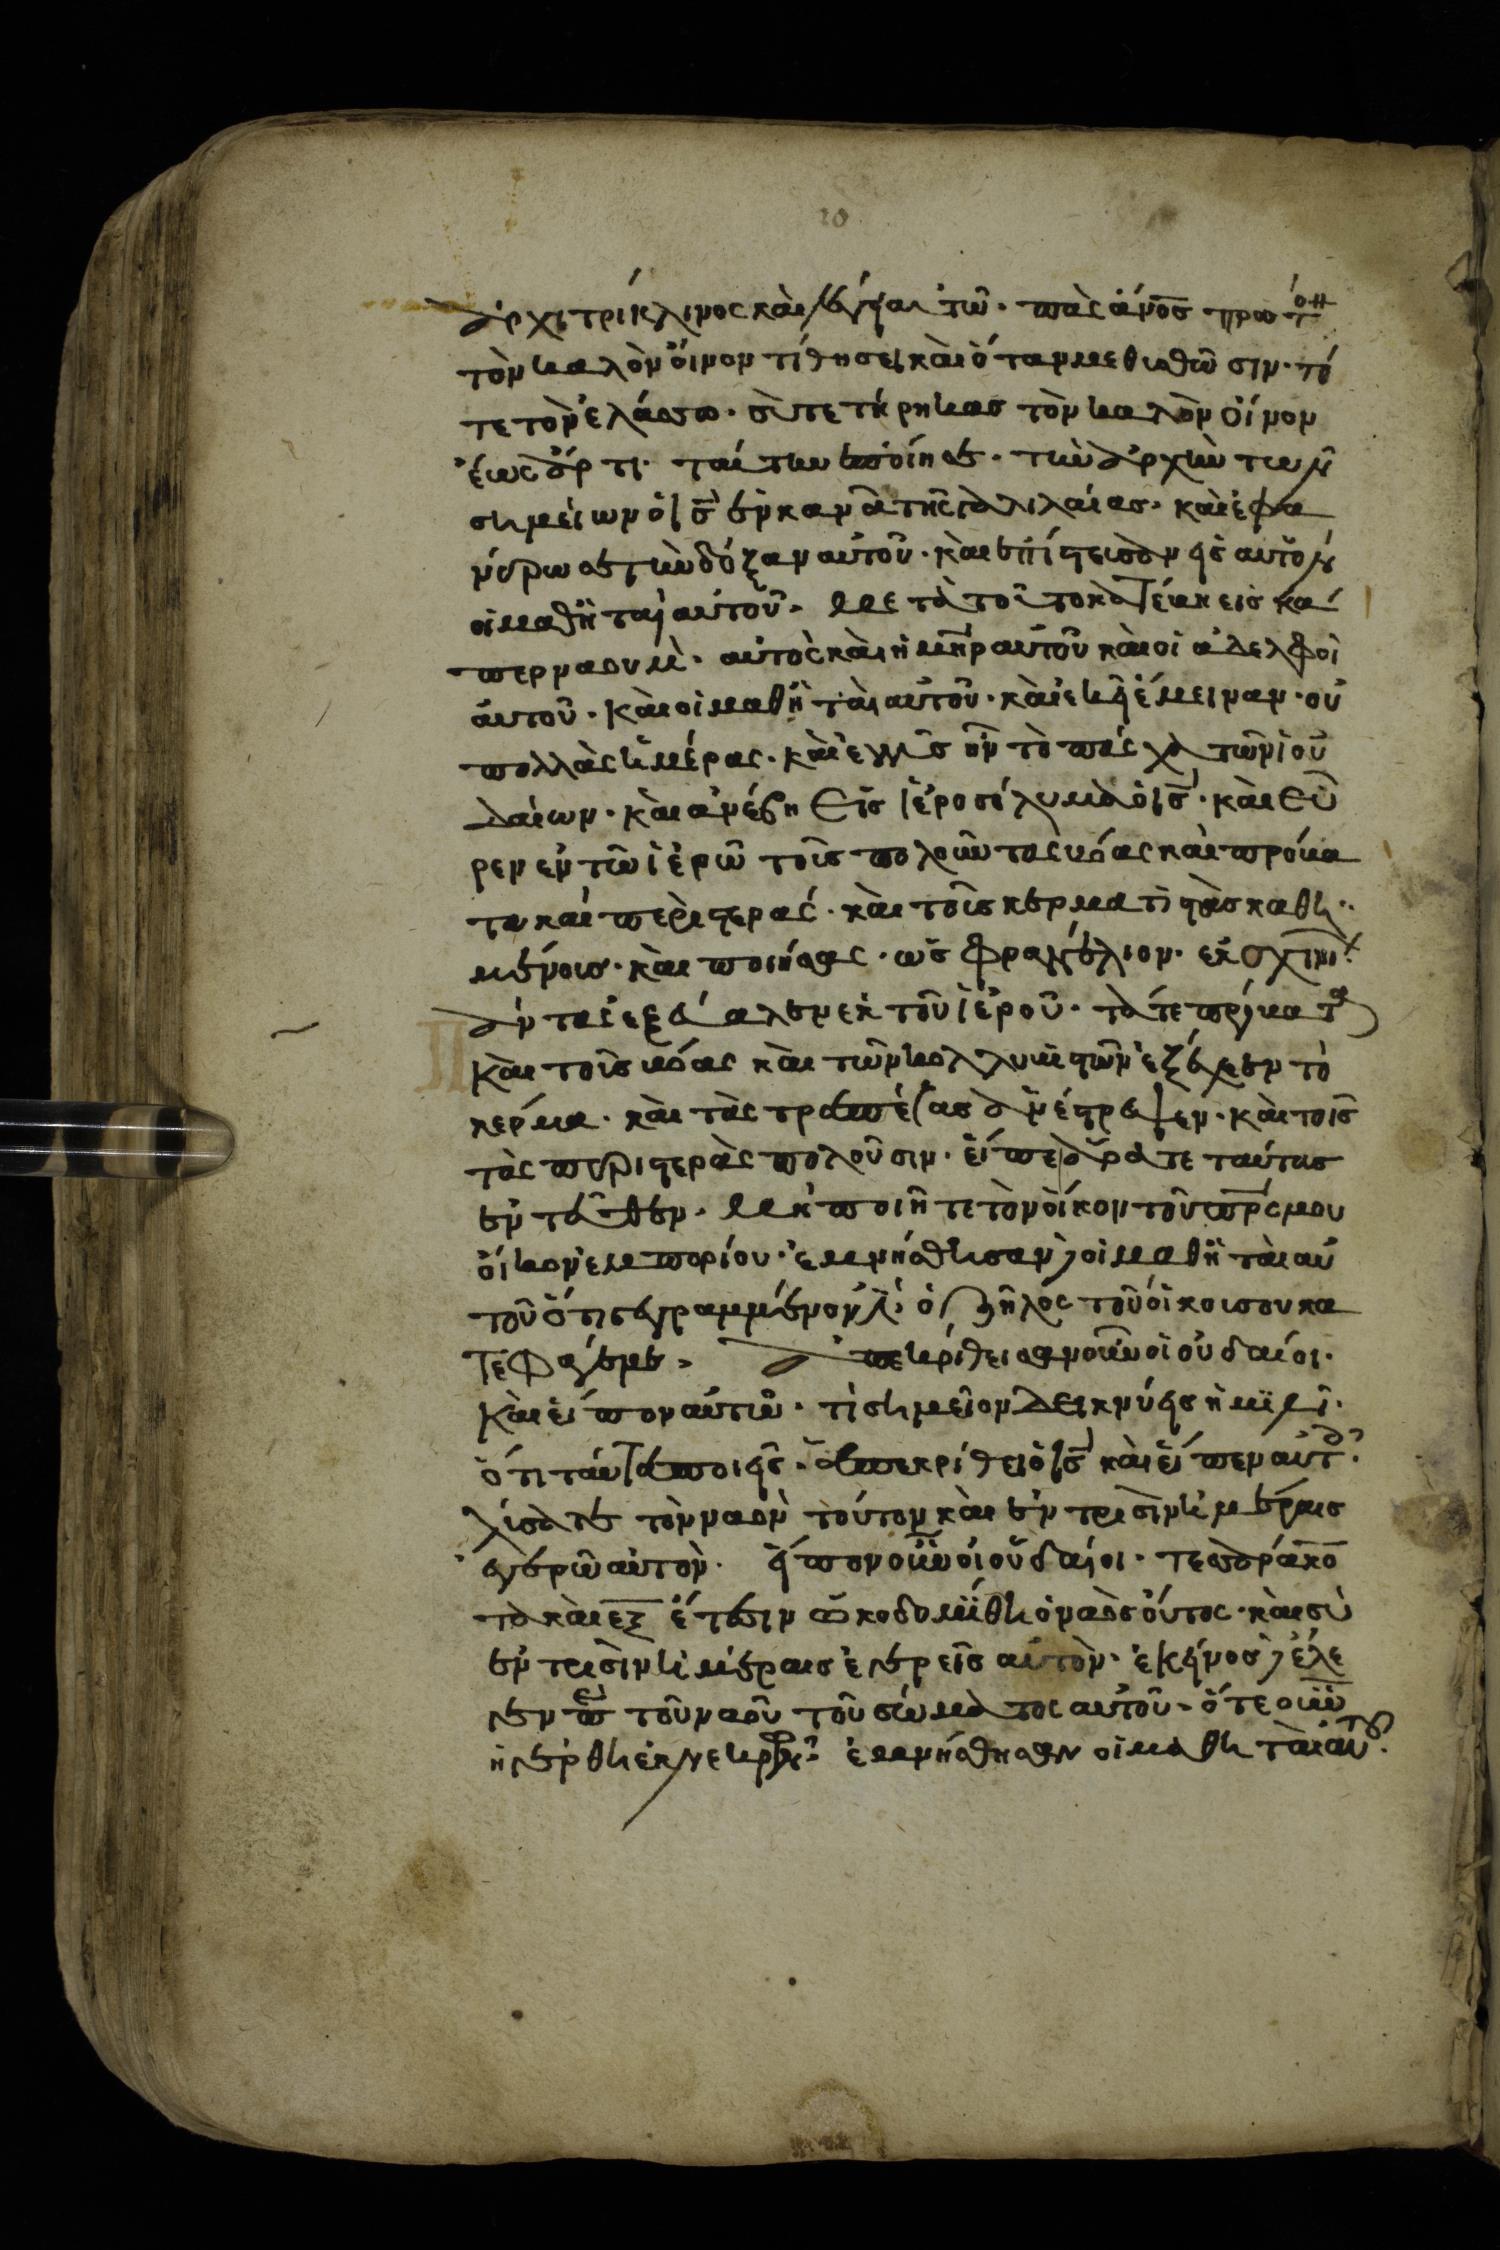 20
ἀρχιτρίκλινος καὶ λέγει αὐτῶ · πᾶς ἄνο̅σ̅ πρῶτον
τὸν καλὸν οἶνον τίθησει καὶ ὅταν μεθισθῶσιν · τό
τε τὸν ἐλάσσω · σὺ τετήρηκας τὸν καλὸν οἶνον
ἕως ἄρτι · ταύτην ἐποίησε · τὴν ἀρχὴν τῶν
σημείων ὁ ι̅σ̅ ἐν κανᾶ τῆς γαλιλαίας · καὶ ἐφα
νέρωσε τὴν δόξαν αὐτοῦ · καὶ ἐπίστευσαν εἰς αὐτὸν
οἱ μαθηταὶ αὐτοῦ · Μετὰ τοῦτο κατέβη εἰς κα
περναοὺμ · αὐτὸς καὶ ἡ μη̅ρ̅ αὐτοῦ καὶ οἱ ἀδελφοὶ
αὐτοῦ · καὶ οἱ μαθηταὶ αὐτοῦ · καὶ ἐκεῖ ἔμειναν · οὐ
πολλὰς ἡμέρας · καὶ ἐγγὺς ἦν τὸ πάσχα τῶν ἰου
δαίων · καὶ ἀνέβη εἰς ἱεροσόλυμα ὁ ι̅σ̅ · καὶ εὗ
ρεν ἐν τῶ ἱερῶ τοὺς πολοῦντας βόας καὶ πρόβα
τα καὶ περιστερὰς · καὶ τοὺς κερματιστὰς καθη
μένους · καὶ ποιήσας · ὡς φραγέλιον · ἐκ σχοινί
ἅντας ἐξέβαλεν ἐκ τοῦ ἱεροῦ · τά τε πρόβατα
καὶ τοὺς βόας καὶ τῶν κολλυβιστῶν ἐξέχεεν τὸ
κέρμα · καὶ τὰς τραπέζας ἀνέστρεψεν · καὶ τοῖς
τὰς περιστερὰς πολοῦσιν · εἶπεν ἄρατε ταύτας
ἐντεῦθεν · Μὴ ποιῆτε τὸν οἶκον τοῦ πρ̅ς̅ μου
οἶκον ἐμπορίου · ἐμνήσθησαν δὲ οἱ μαθηταὶ αὐ
τοῦ ὅτι γεγραμμένον ἐστὶν ὁ ζῆλος τοῦ οἴκου σου κα
τέφαγέ με · ἀπεκρίθεισαν οὖν οἱ ἰουδαῖοι ·
καὶ εἶπον αὐτῶ · τί σημεῖον δεικνύεις ἡμῖν ·
ὅτι ταῦτα ποιεῖς · ἀπεκρίθει ὁ ι̅σ̅ καὶ εἶπεν αὐτοῖς
λύσατε τὸν ναὸν τοῦτον καὶ ἐν τρισὶν ἡμέραις
ἐγερῶ αὐτόν · εἶπον οὖν οἱ ἰουδαῖοι · τεσσαράκο
τα καὶ ἓξ ἔτεσιν ὠκοδομήθη ὁ ναὸς οὗτος · καὶ σὺ
ἐν τρισὶν ἡμέραις ἐγερεῖς αὐτὸν · ἐκεῖνος δὲ ἔλε
γεν περὶ τοῦ ναοῦ τοῦ σώματος αὐτοῦ · ὅτε οὖν
ἠγέρθη ἐκ νεκρῶν ἐμνήσθησαν οἱ μαθηταὶ αὐτοῦ ·